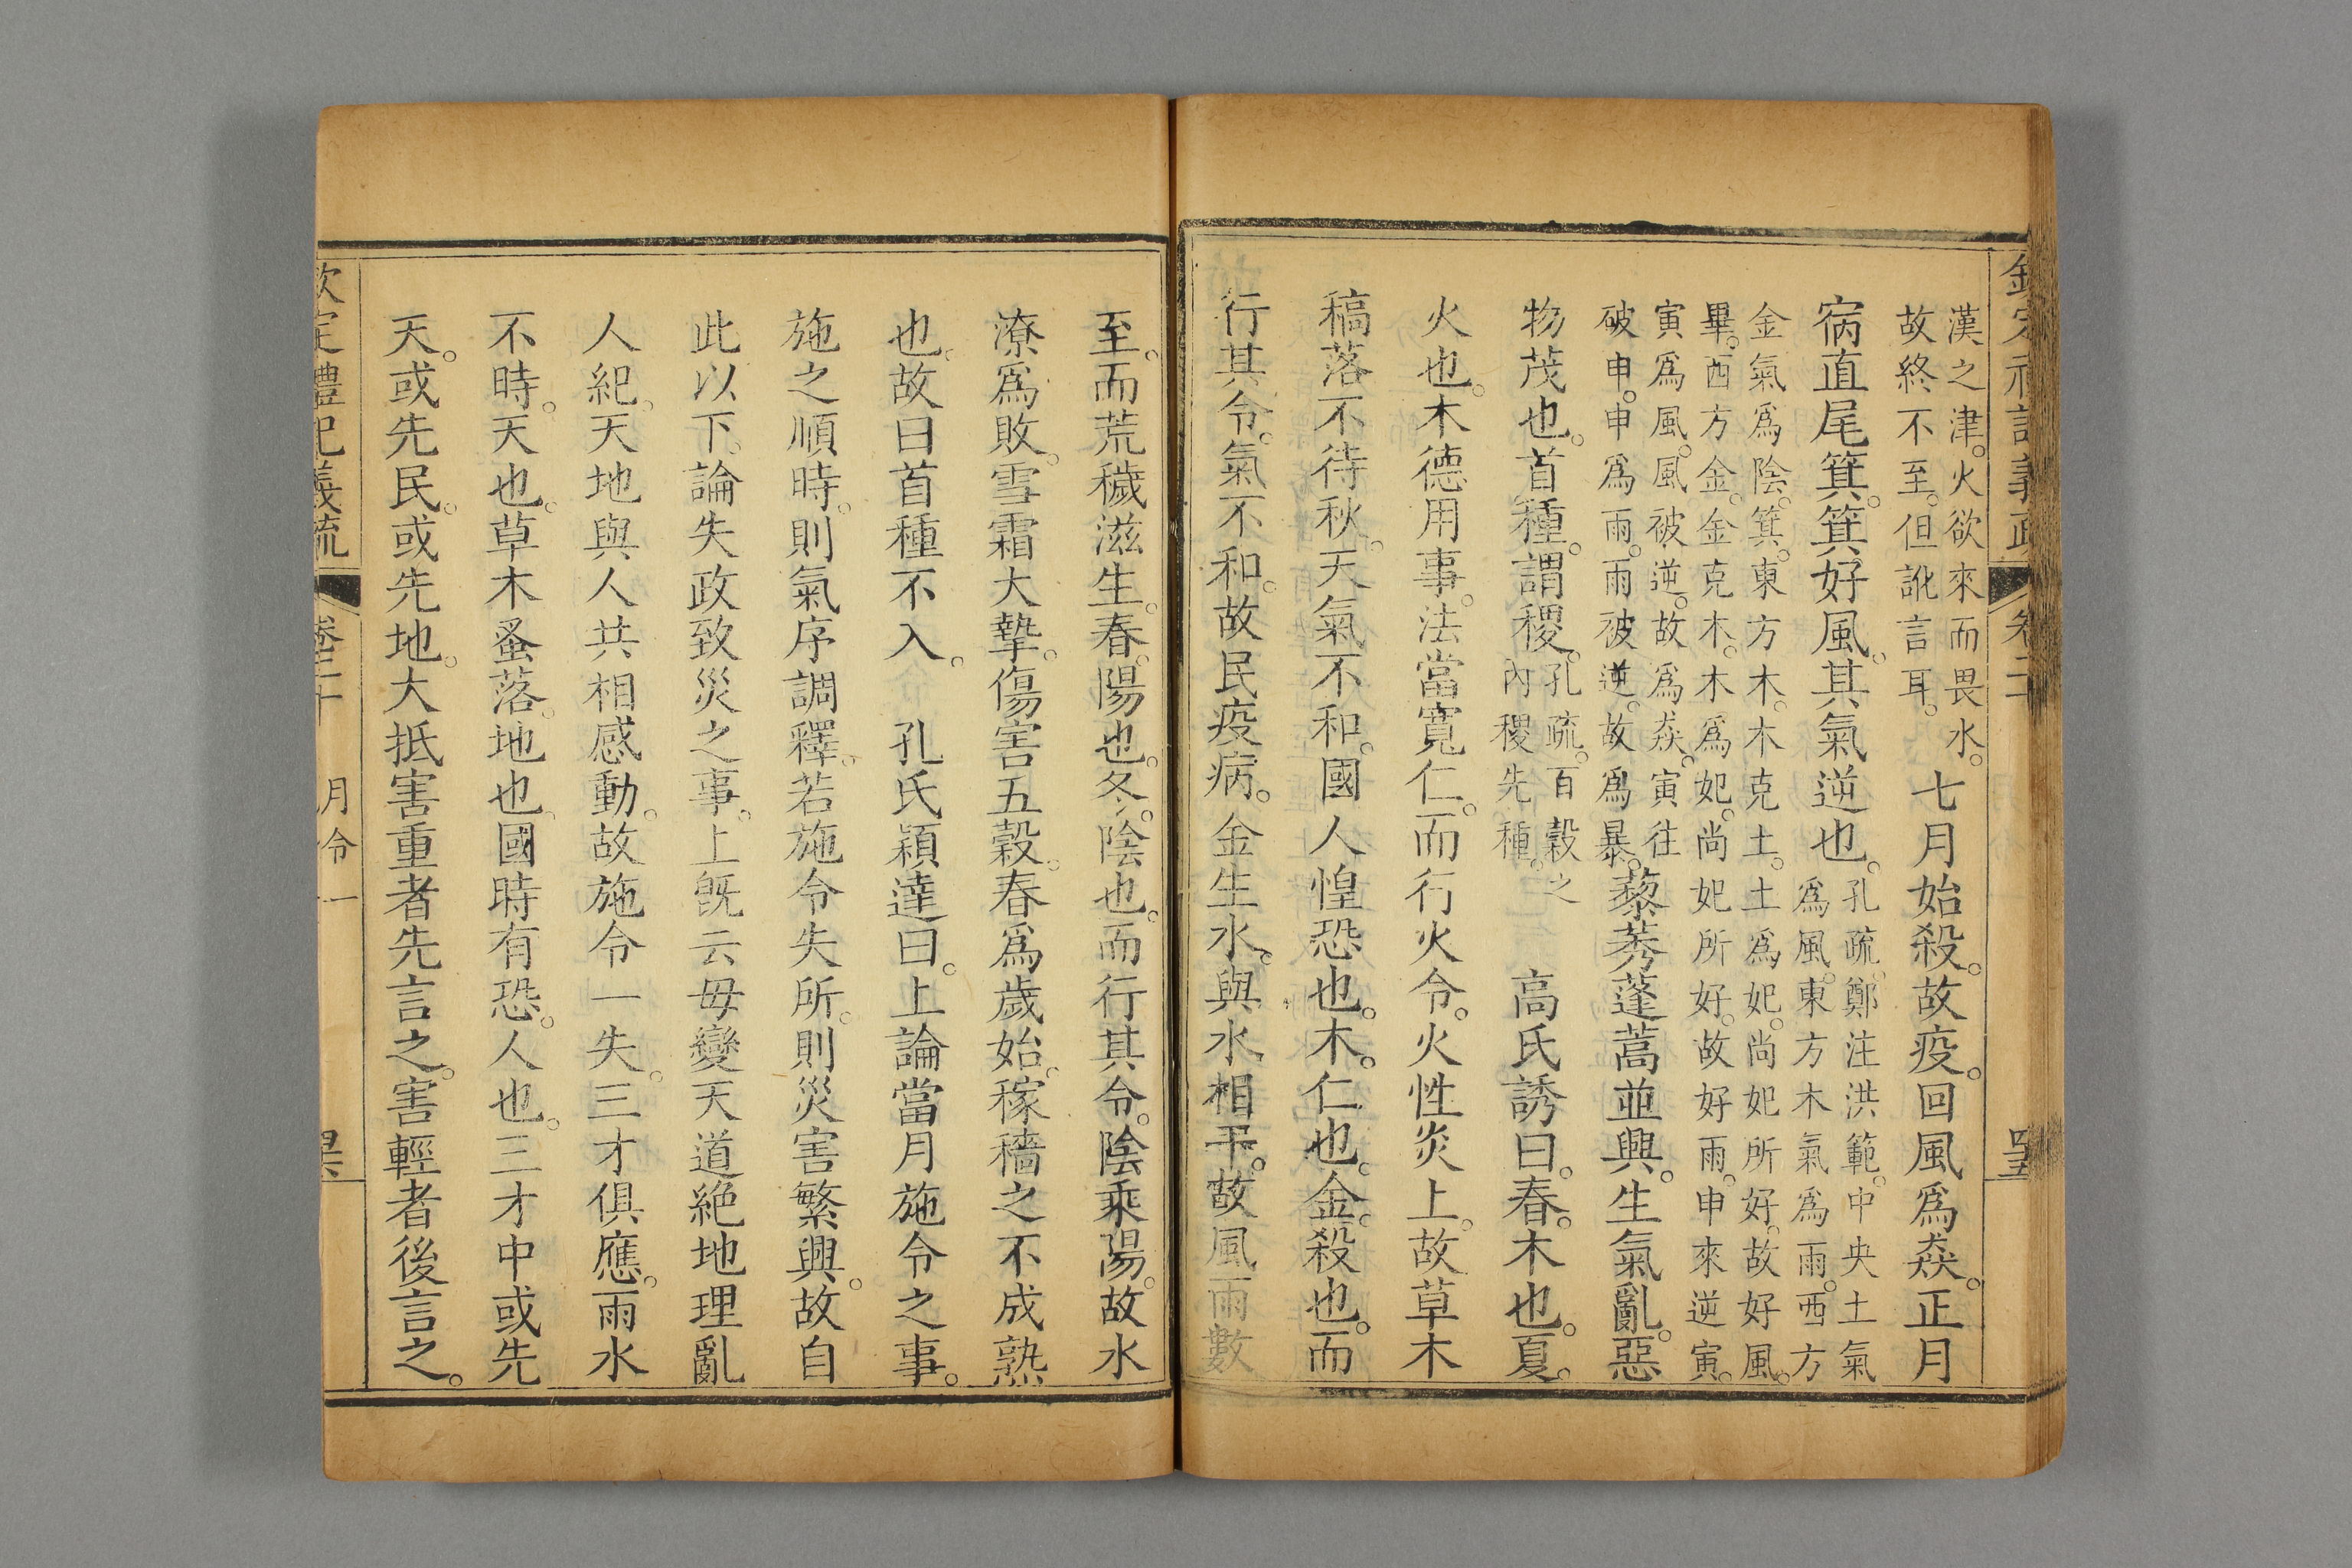 欽定禮記義疏 卷二十
漢之津。火欲來而畏水。
故終不至。但訛言耳。
七月始殺。故疫。回風爲猋。正月
宿直尾箕。箕好風。其氣逆也。
孔疏鄭注洪範。中央土氣
爲風。東方木氣爲雨。西方
金氣爲陰。箕。東方木。木克土。土爲妃。尚妃所好。故好風。
畢。西方金。金克木。木爲妃。尚妃所好。故好雨。申來逆寅。
寅爲風。風被逆。故爲猋。寅往
破申。申爲雨。雨被逆。故爲暴。
藜莠蓬蒿並興。生氣亂。惡
物茂也。首種。謂稷。
孔疏。百穀之
內稷先種。
高氏誘曰。春。木也。夏。
火也。木德用事。法當寬仁。而行火令。火性炎上。故草木
稿落不待秋。天氣不和。國人惶恐也。木。仁也。金。殺也。而
行其令。氣不和。故民疫病。金生水。與水相干。故風雨數
至。而荒穢滋生。春。陽也。冬。陰也。而行其令。陰乘陽。故水
潦爲敗。雪霜大摯。傷害五穀。春爲歲始。稼穡之不成熟
也。故曰首種不入。 孔氏穎達曰。上論當月施令之事。
施之順時。則氣序調釋。若施令失所。則災害繁興。故自
此以下。論失政致災之事。上旣云毋變天道絕地理亂
人紀。天地與人共相感動。故施令一失。三才俱應。雨水
不時。天也。草木蚤落。地也。國時有恐。人也。三才中或先
天。或先民。或先地。大抵害重者先言之。害輕者後言之。
欽定禮記義疏 卷二十 月令一